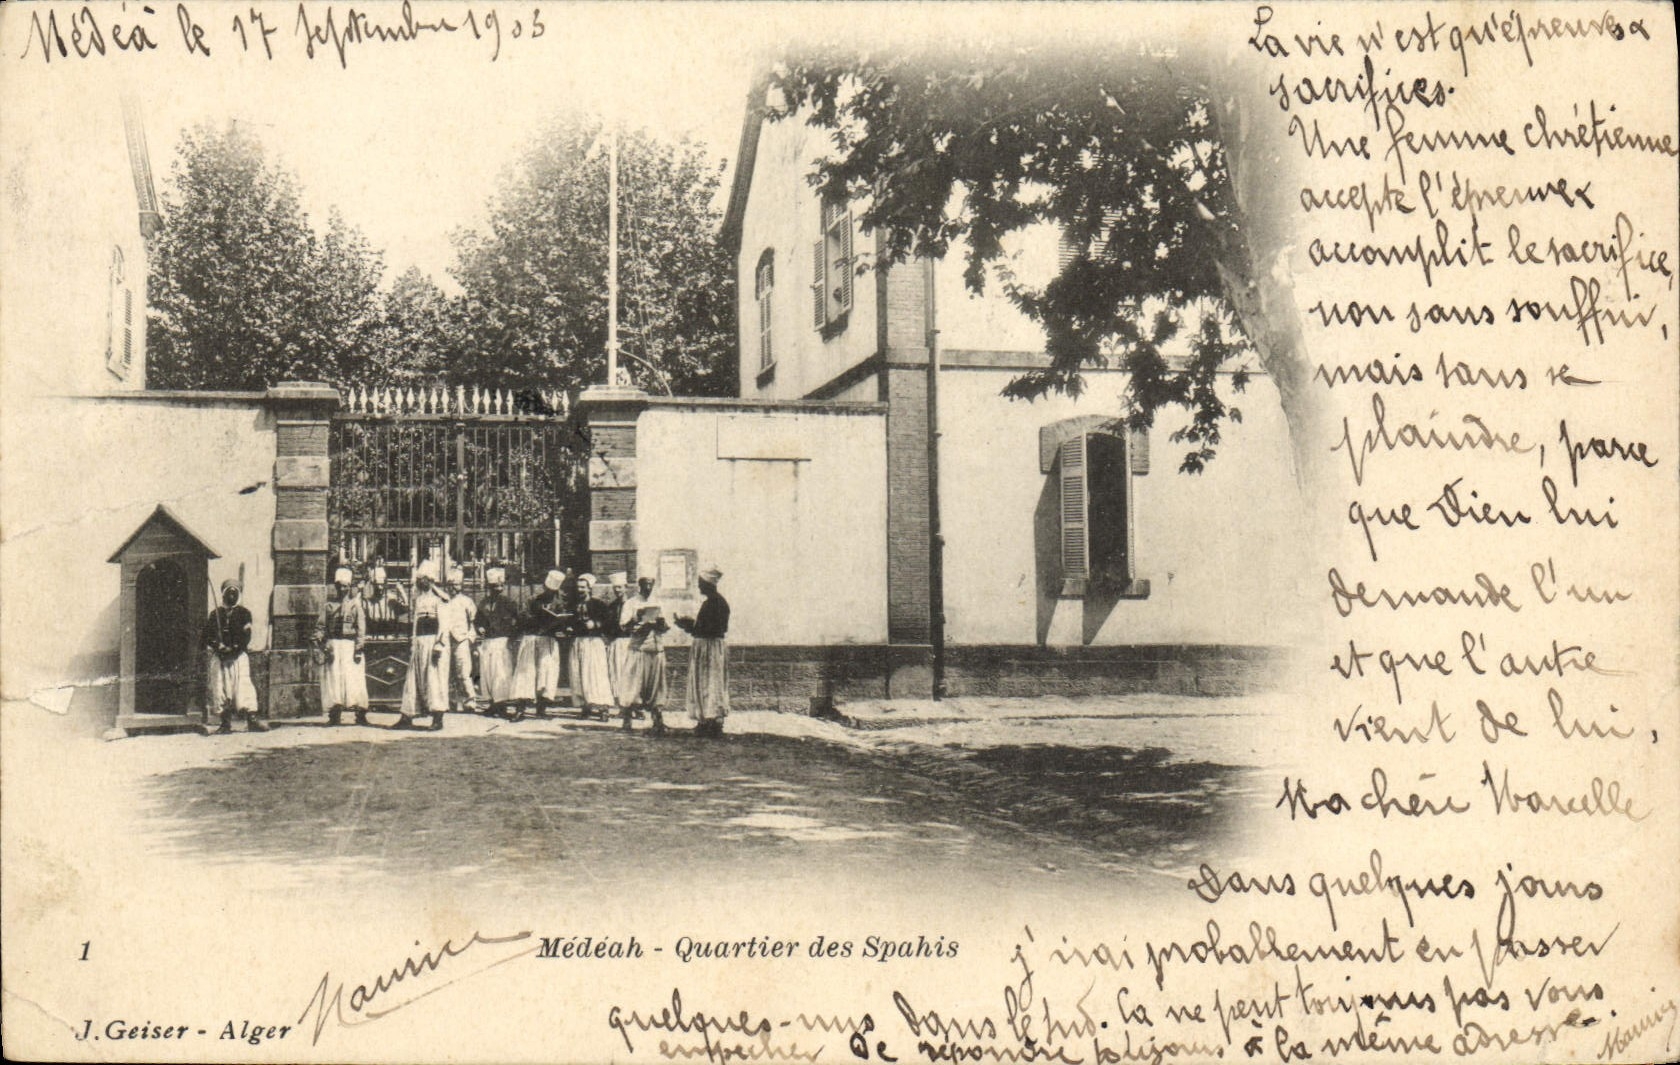 Médéa le 17 Septembre 1903
La vie n'est qu'épreuves &
sacrifices.
Une femme chrétienne
accepte l'épreuve &
accomplit le sacrifice,
non sans souffrir,
mais sans se
plaindre, parce
que Dieu lui
demande l'un
et que l'autre
vient de lui,
Ma chérie Marcelle
Dans quelques jours
j'irai probablement en passer
quelques-uns dans le sud. Ca ne peut toujours pas vous
empecher de répondre toujours à la même adresse.
Maurice
1
Médéah - Quartier des Spahis
J. Geiser - Alger
Maurice